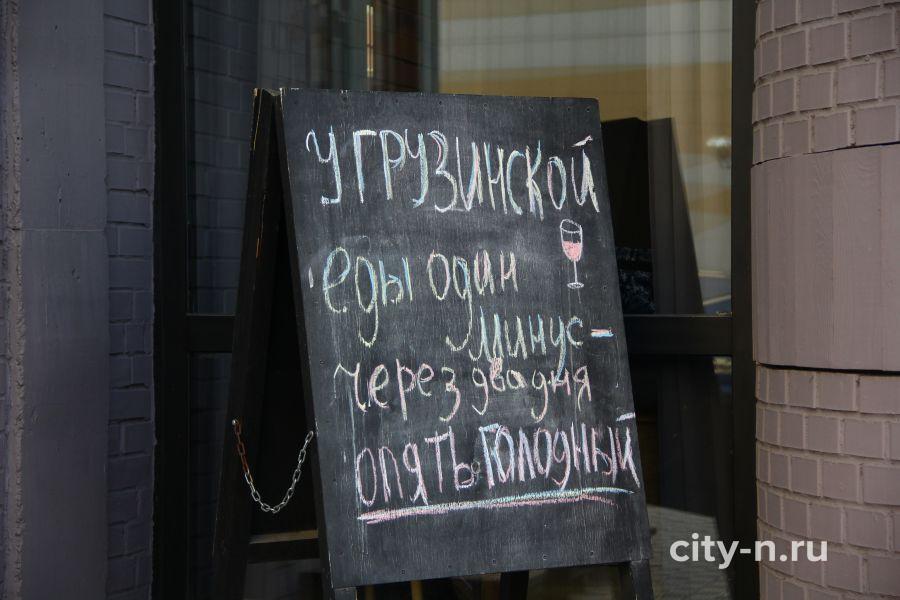 У ГРУЗИНСКОЙ
еды один
минус -
через два дня
опять ГОЛОДНЫЙ
city-n.ru